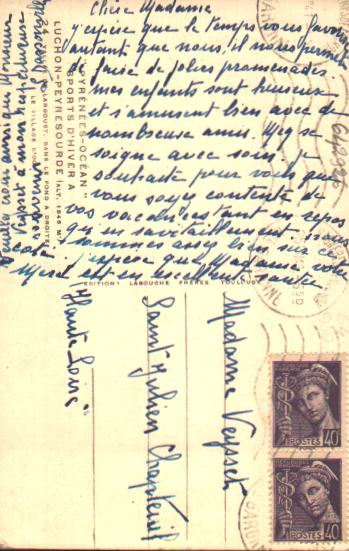 Chère Madame
J'espère que le temps vous favorise
autant que nous. il nous permet
de faire de jolies promenades.
mes enfants sont heureux
et s'amusent bien avec de
nombreux amis.
soigne avec soin. Je
souhaite pour vous que
vous soyez contente de
vos vacances tant en repos
qu'en ravitaillement. nous
sommes assez bien sur ce
J'espère que Madame votre
Mère est en excellente santé
Veuillez croire ainsi que Monsieur
Veysset à mon respectueux
souvenir
"PYRÉNÉES-OCÉAN"
SPORTS D'HIVER A
LUCHON-PEYRESOURDE (ALT. 1545 M.)
24
LE VILLAGE D'OO
EDITION: LABOUCHE FRÈRES TOULOUSE
Madame Veysset
Saint Julien Chapteuil
"Haute Loire"
POSTES 40
POSTES 40